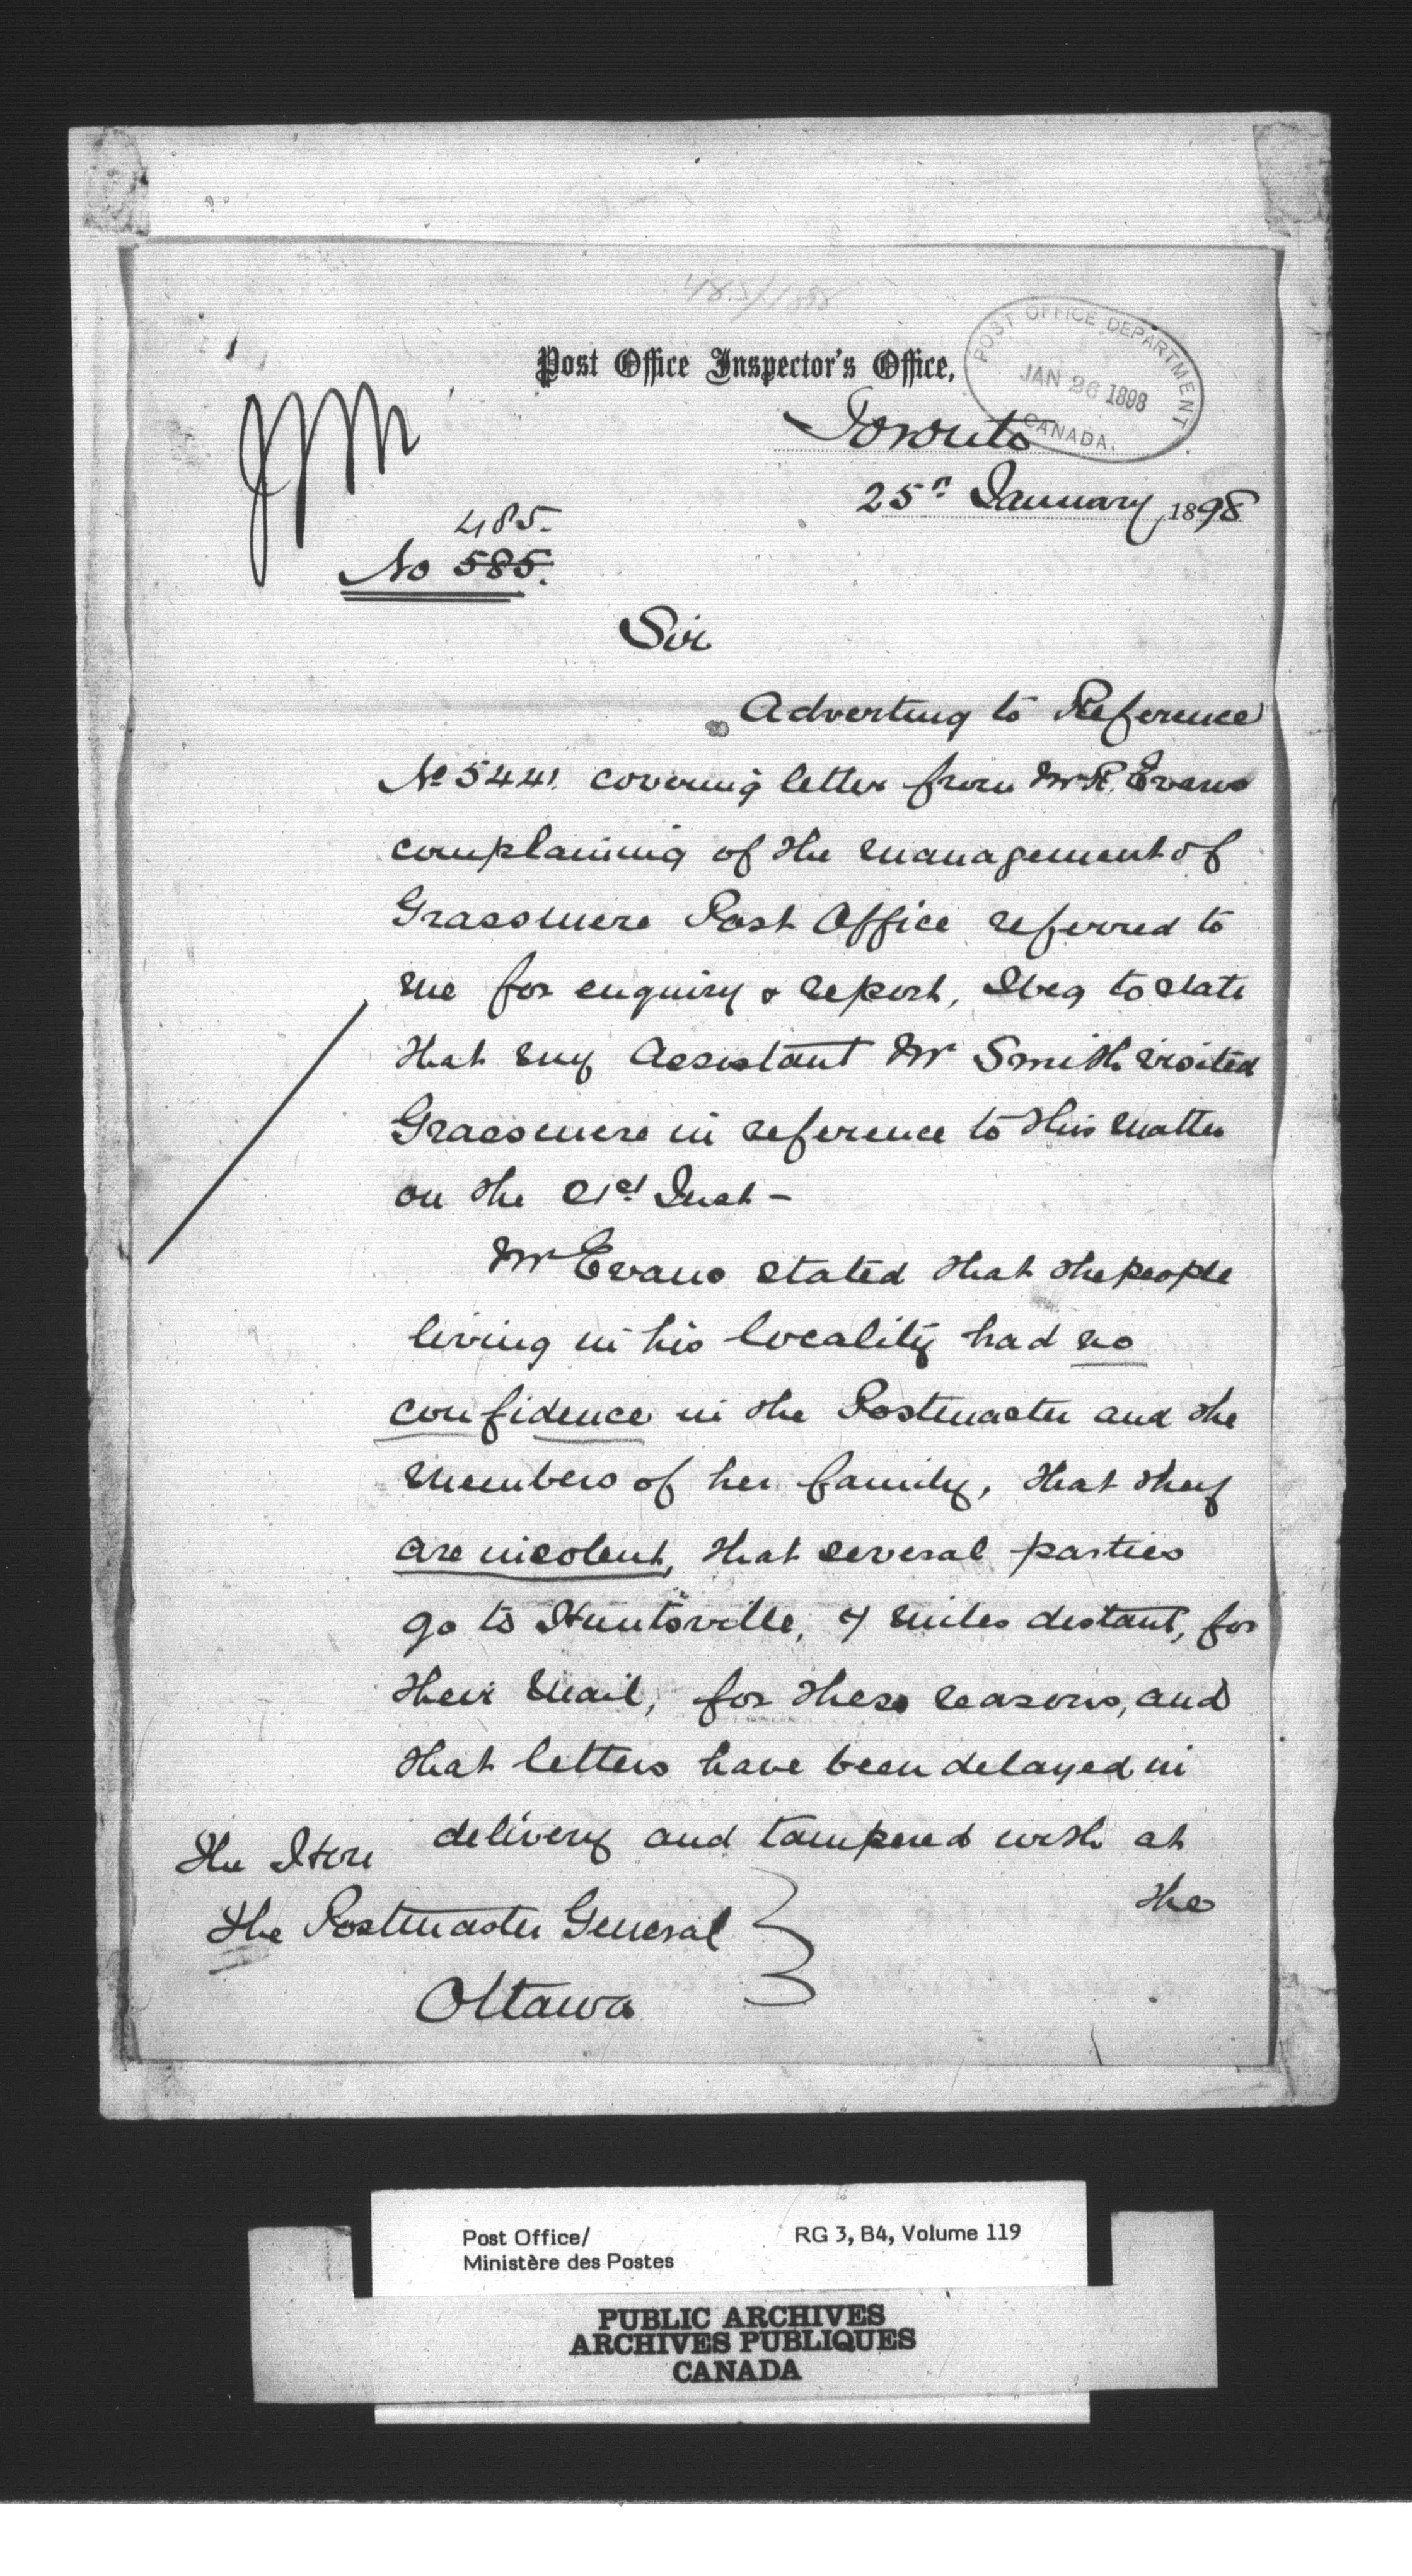 485/1898
Post Office Inspector's Office,
POST OFFICE DEPARTMENT
JAN 26 1898
CANADA.
Toronto
25th January 1898
485.
No 585.
Sir
Adverting to Reference
No 5441 covering letter from Mr R. Evans
complaining of the management of
Grassmere Post Office referred to
me for enquiry & report, I beg to state
that my Assistant Mr Smith visited
Grassmere in reference to this matter
on the 21st Inst -
Mr Evans stated that the people
living in his locality had no
confidence in the Postmaster and the
members of her family, that they
are insolent, that several parties
go to Huntsville, 7 miles distant, for
their Mail, for these reasons, and
that letters have been delayed in
delivery and tampered with at
the
The Hon
the Postmaster General
Ottawa
Post Office/
Ministère des Postes
RG 3, B4, Volume 119
PUBLIC ARCHIVES
ARCHIVES PUBLIQUES
CANADA